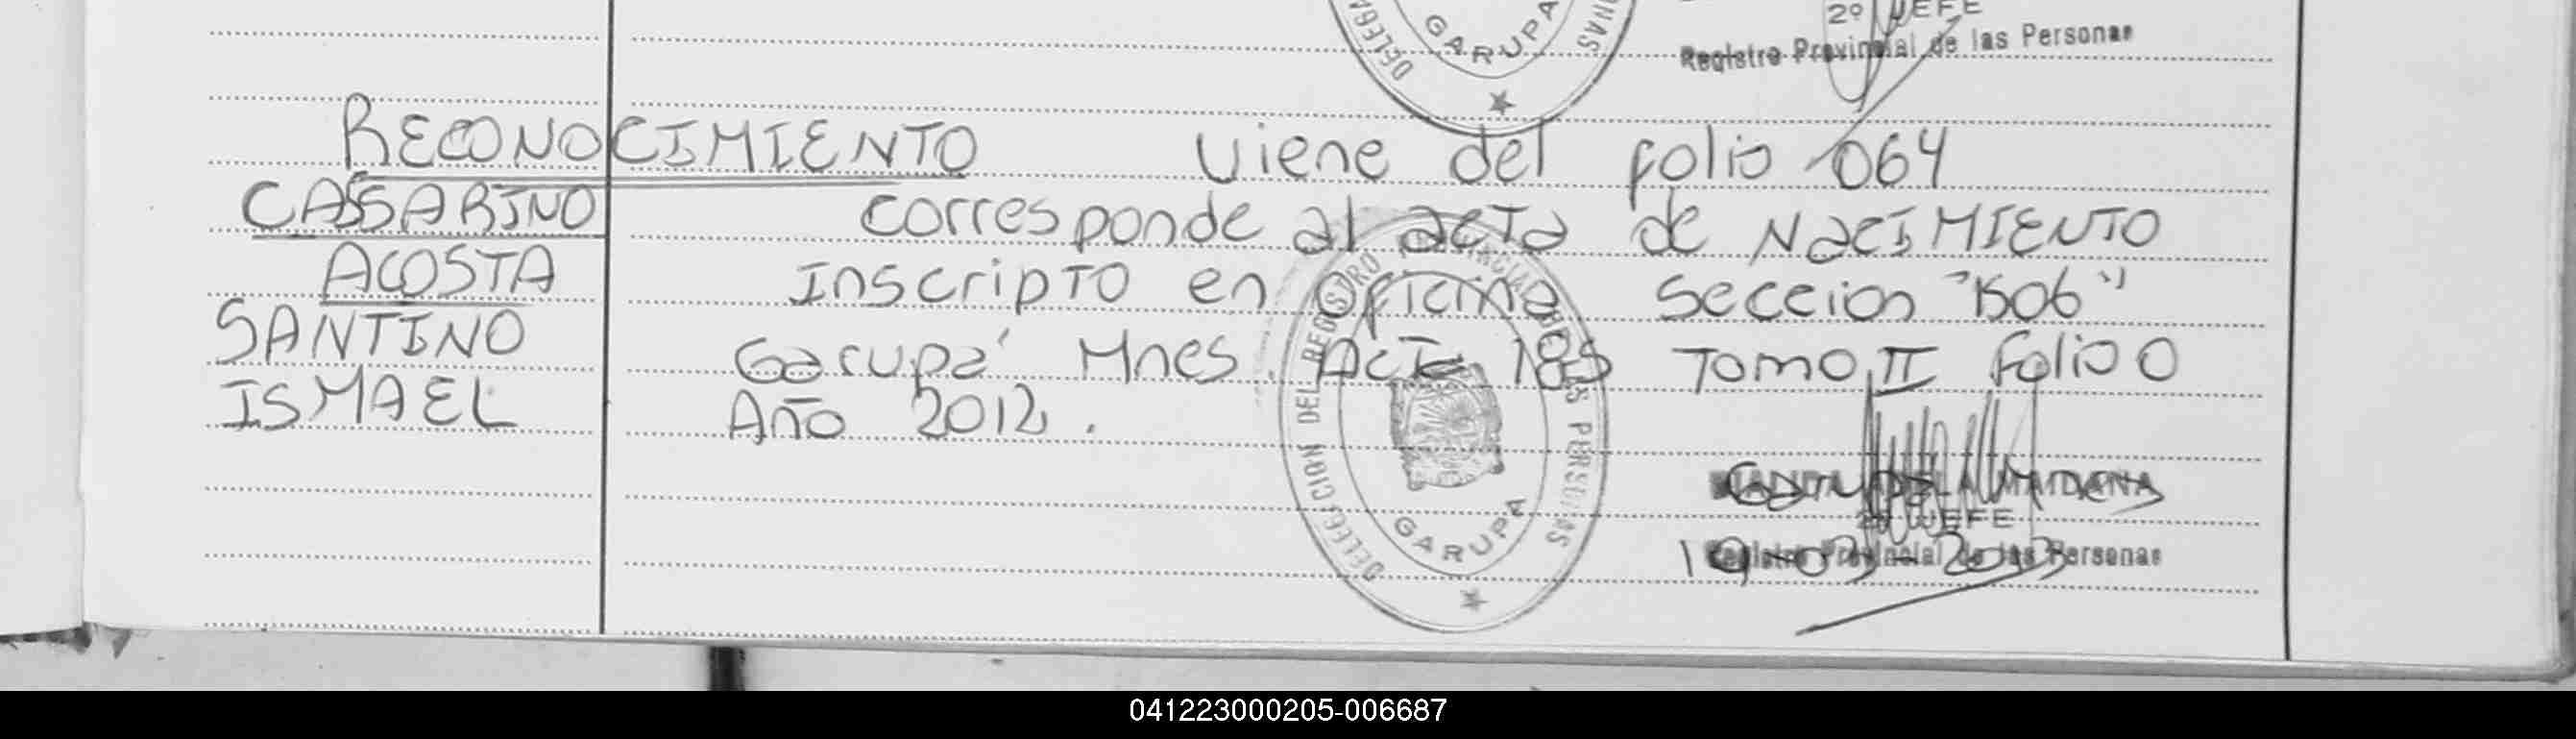 DELEGA
GARUPA
NAS
2º JEFE
Registro Provincial de las Personas
RECONOCIMIENTO
Viene del folio 064
CASSARINO
corresponde al acta de NACIMIENTO
ACOSTA
Inscripto en oficina Seccion "1506"
SANTINO
Garupa' Mnes. Acta 185 Tomo II Folio 0
ISMAEL
Año 2012.
DELEGACION DEL REGISTRO PROVINCIAL DE LAS PERSONAS
GARUPA
Garupa Mnes
MAIDANA
2º JEFE
19-03-2013
Registro Provincial de las Personas
041223000205-006687